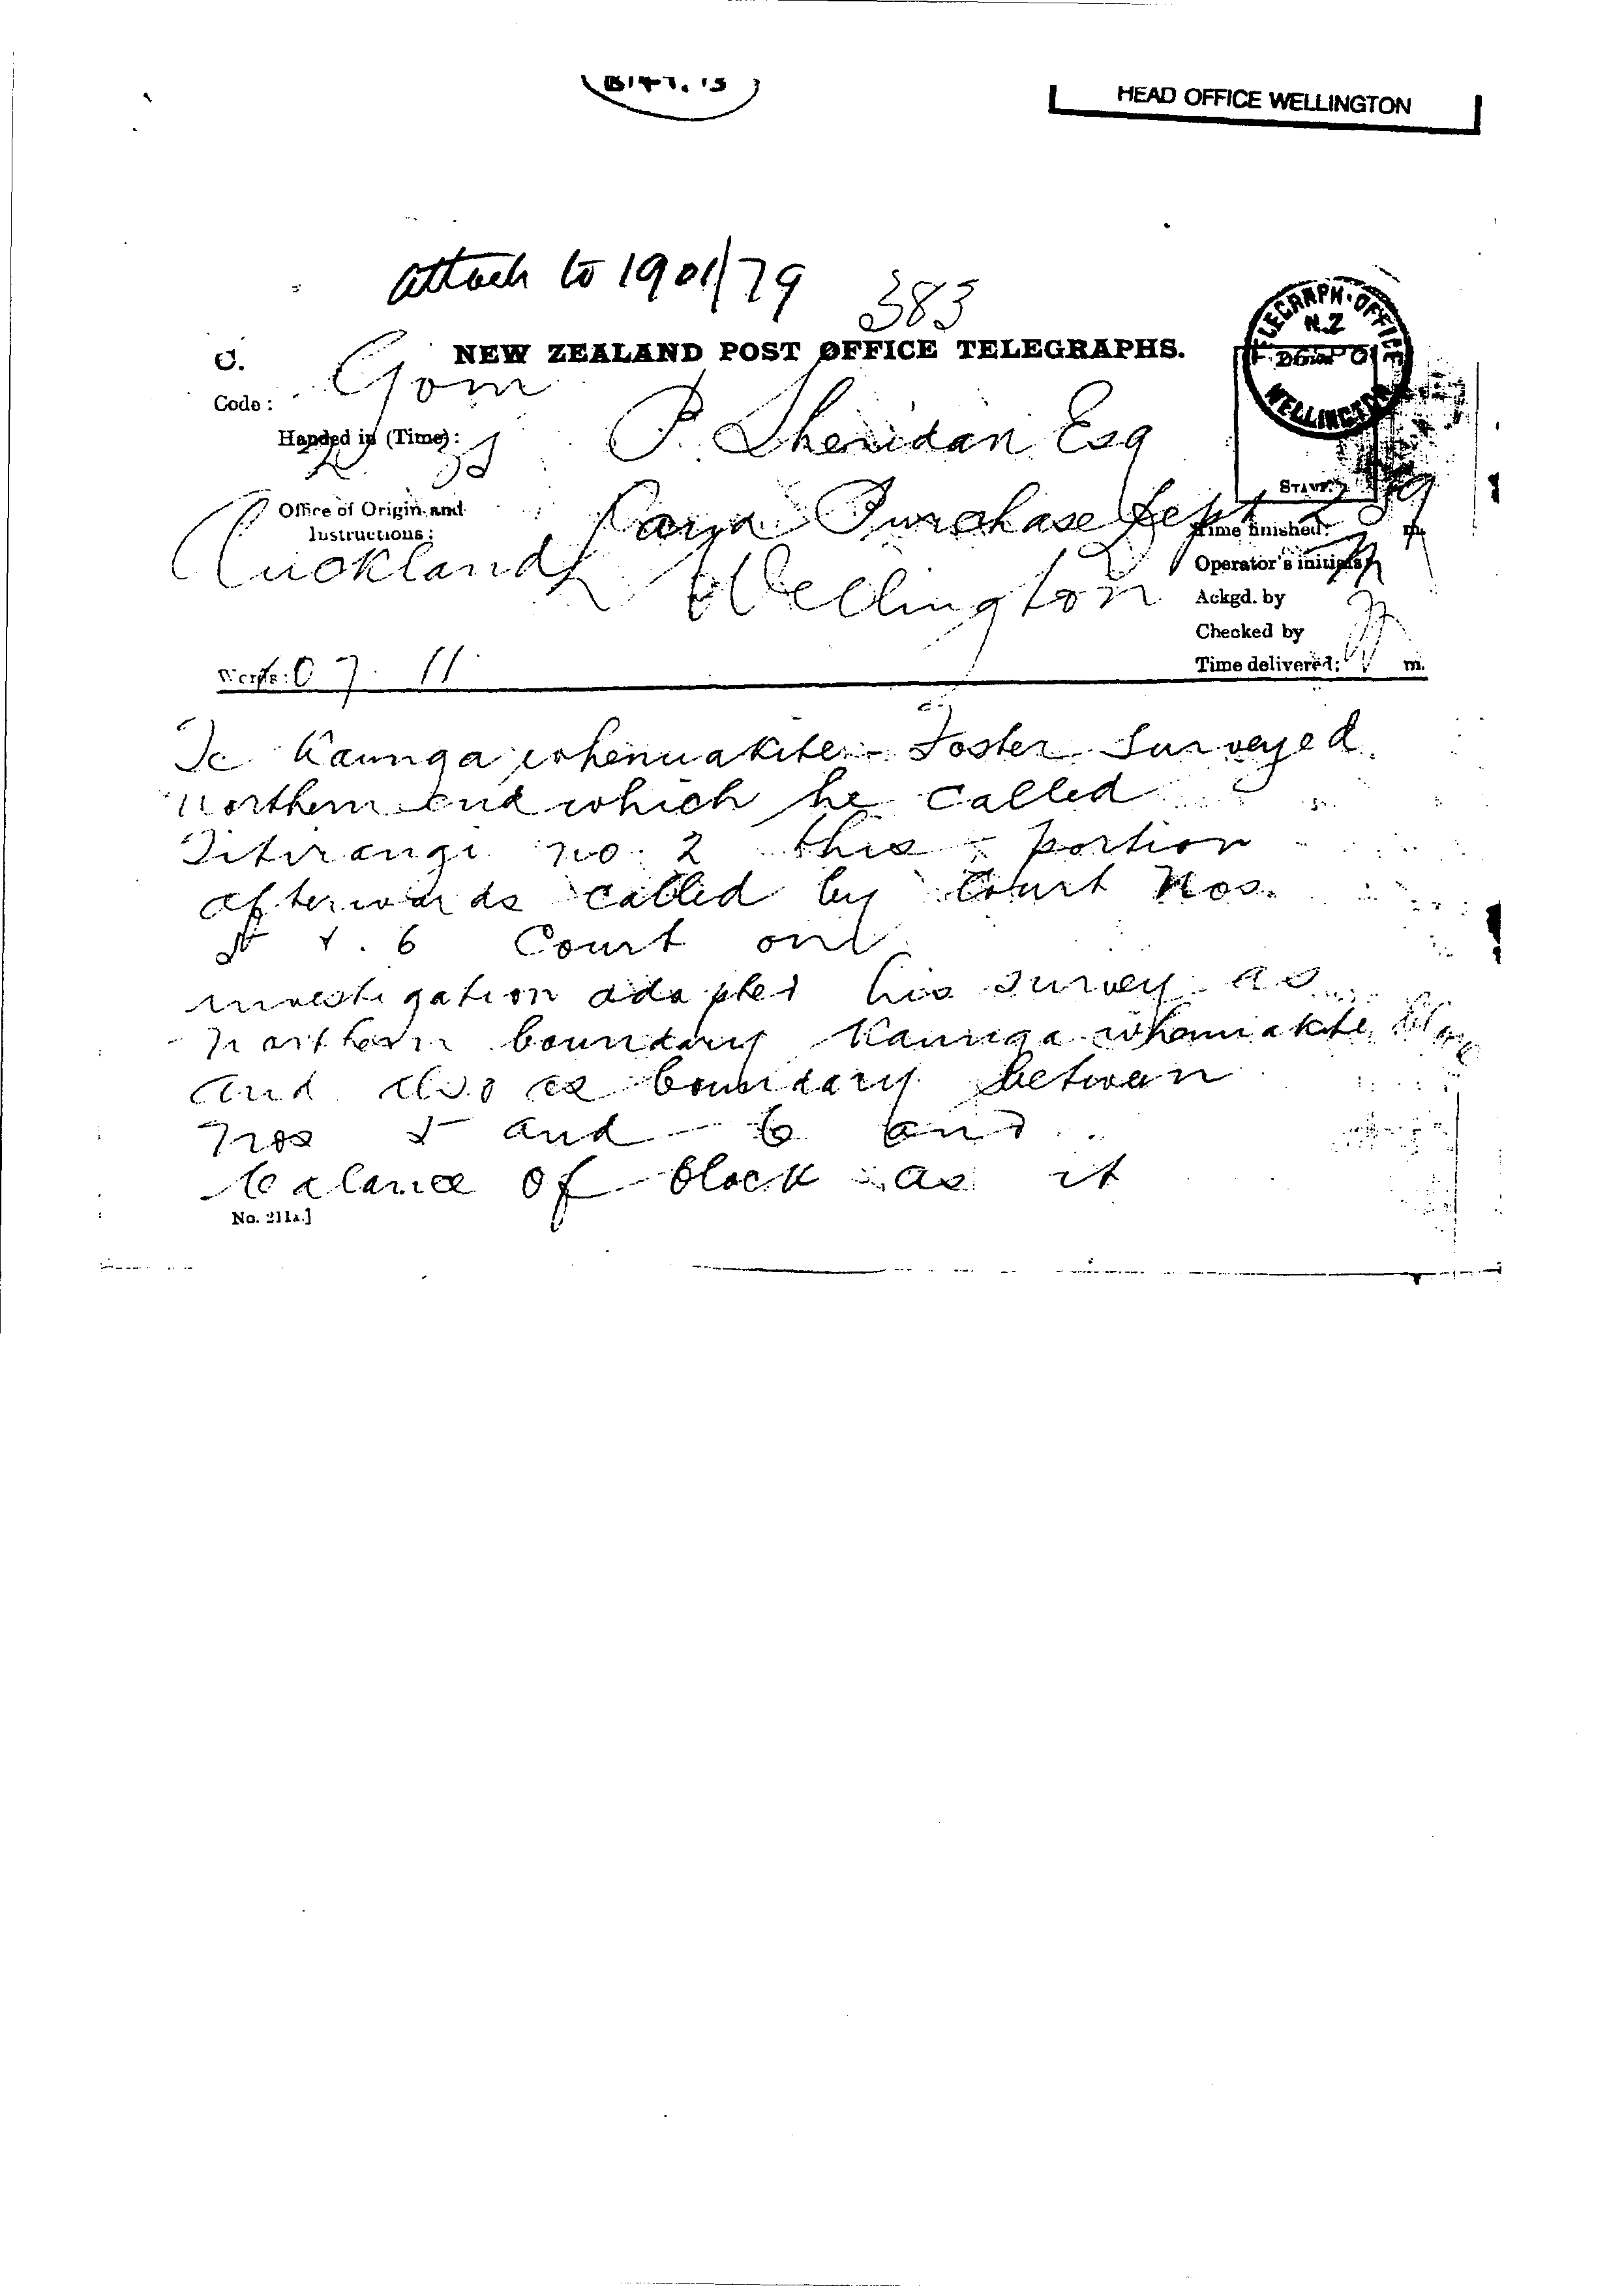 HEAD OFFICE WELLINGTON
attach to 1901/79
383
NEW ZEALAND POST OFFICE TELEGRAPHS.
C.
Code :
Handed in (Time) :
P. Sheridan Esq
Office of Origin and
Instructions :
Purchase Dept
Auckland
Wellington
TELEGRAPH-OFFICE
N.Z
WELLINGTON
STAMP.
Time finished:
Operator's initials
Ackgd. by
Checked by
Time delivered: m.
Words: 07. 11
Kaunga whenuakite - Foster Surveyed
northern end which he called
Titirangi no. 2 this portion
afterwards called by Court Nos.
5 & . 6 Court on
investigation adapted his survey as
northern boundary Kaunga whenuakite
and also as boundary between
nos 5 and 6 and
balance of block as it
No. 211A.]